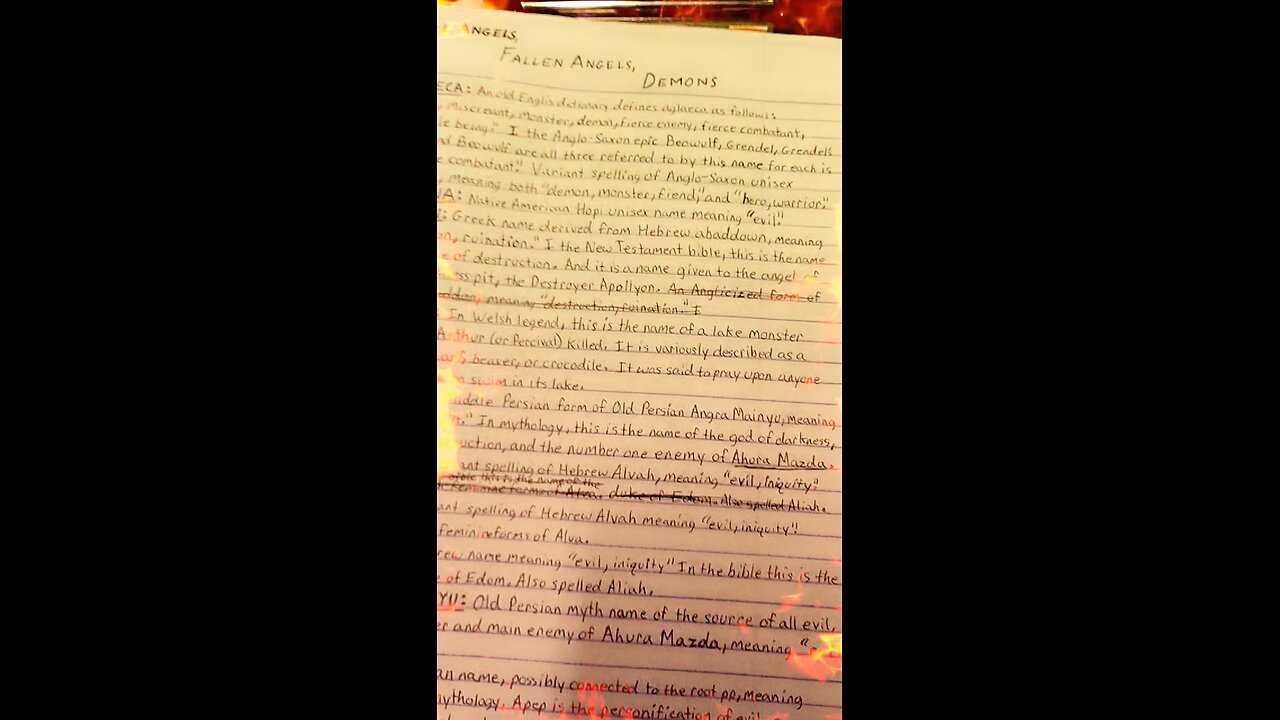 ANGELS,
FALLEN ANGELS,
DEMONS
ECA: An old Englis dictionary defines aglaeca as follows:
, miscreant, monster, demon, fierce enemy, fierce combatant,
le being." I the Anglo-Saxon epic Beowulf, Grendel, Grendel's
nd Beowulf are all three referred to by this name for each is
e combatant." Variant spelling of Anglo-Saxon unisex
, meaning both "demon, monster, fiend," and "hero, warrior."
A: Native American Hopi unisex name meaning "evil."
: Greek name derived from Hebrew abaddown, meaning
on, ruination." I the New Testament bible, this is the name
e of destruction. And it is a name given to the angel of
ss pit, the Destroyer Apollyon. An Anglicized form of
addon, meaning "destruction, ruination." I
: In Welsh legend, this is the name of a lake monster
Arthur (or Percival) killed. It is variously described as a
beaver, or crocodile. It was said to pray upon anyone
swim in its lake.
iddle Persian form of Old Persian Angra Mainyu, meaning
t." In mythology, this is the name of the god of darkness,
uction, and the number one enemy of Ahura Mazda.
ant spelling of Hebrew Alvah, meaning "evil, Iniquity."
this is the name of the
feminine form of Alva. duke of Edom. Also spelled Aliah.
ant spelling of Hebrew Alvah meaning "evil, iniquity."
feminine forms of Alva.
rew name meaning "evil, iniquity" In the bible this is the
of Edom. Also spelled Aliah.
YU: Old Persian myth name of the source of all evil,
er and main enemy of Ahura Mazda, meaning
an name, possibly connected to the root pp, meaning
ythology. Apep is the personification of evil